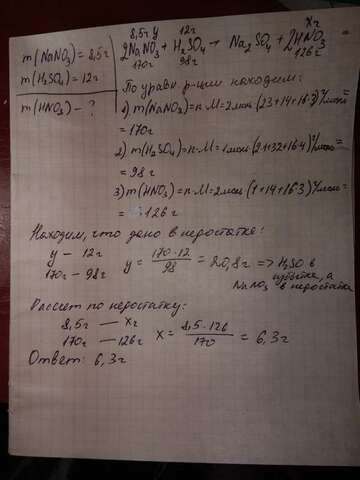 8,5г y 12г xг
m(NaNO₃) = 8,5г
m(H₂SO₄) = 12г
m(HNO₃) - ?
2NaNO₃ + H₂SO₄ → Na₂SO₄ + 2HNO₃
170г 98г 126г
По уравн. р-ции находим:
1) m(NaNO₃)=n·M=2моль·(23+14+16·3)г/моль=
= 170г
2) m(H₂SO₄)=n·M=1моль·(2·1+32+16·4)г/моль=
= 98г
3) m(HNO₃)=n·M=2моль·(1+14+16·3)г/моль=
= 126г
Находим, что дано в недостатке:
y — 12г
170г — 98г y = 170·12/98 = 20,8г => H₂SO в
избытке, а
NaNO₃ в недостатке
Рассчет по недостатку:
8,5г — xг
170г — 126г x = 8,5·126/170 = 6,3г
Ответ: 6,3г